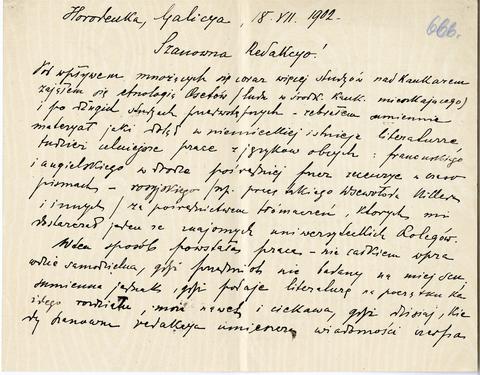 Horodenka, Galicya, 18. VII. 1902.
666.
Szanowna Redakcyo!
Pod wpływem mnożących się coraz więcej studyów nad Kaukazem
zająłem się etnologią Osetów (ludu w środk. Kauk. mieszkającego)
i po długich studyach przedwstępnych – zebrałem sumiennie
materyał jaki dotąd w niemieckiej istnieje literaturze,
tudzież celniejsze prace z języków obcych: francuskiego
i angielskiego w drodze pośredniej przez recenzye w czaso
pismach – rosyjskiego np. prace takiego Wsewołoda Millera
i innych / za pośrednictwem tłómaczeń, których mi
dostarczał jeden ze znajomych uniwersyteckich kolegów.
W ten sposób powstała praca – nie całkiem wpra
wdzie samodzielna, gdyż przedmiot nie badany na miejscu,
sumienna jednak, gdyż podaje literaturę na początku ka
żdego rozdziału, może nawet i ciekawa, gdyż dzisiaj, kie
dy szanowna redakcya umieszcza wiadomości